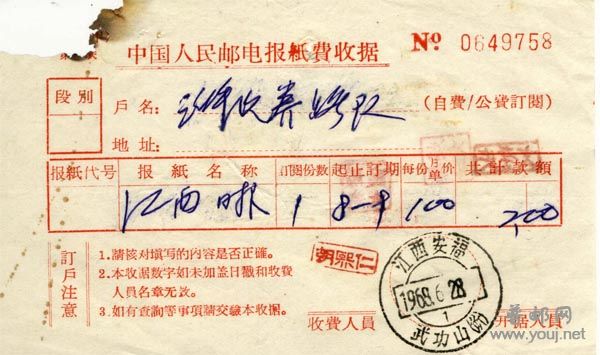 中国人民邮电报紙費收据 № 0649758
段別
戶名：
(自費/公費訂閱)
地址：
报紙代号 报紙名称 訂閱份数 起止訂期 每份月单价 共計款額
江西日报 1 8—9 1.00 2.00
訂戶注意
1.請核对填写的內容是否正確。
2.本收据数字如未加盖日戳和收費
人員名章无效。
3.如有查詢等事項請交繳本收据。
胡熙仁
江西安福
1968.6.28
1
武功山
收費人員 开据人員
華邮网
www.youj.net